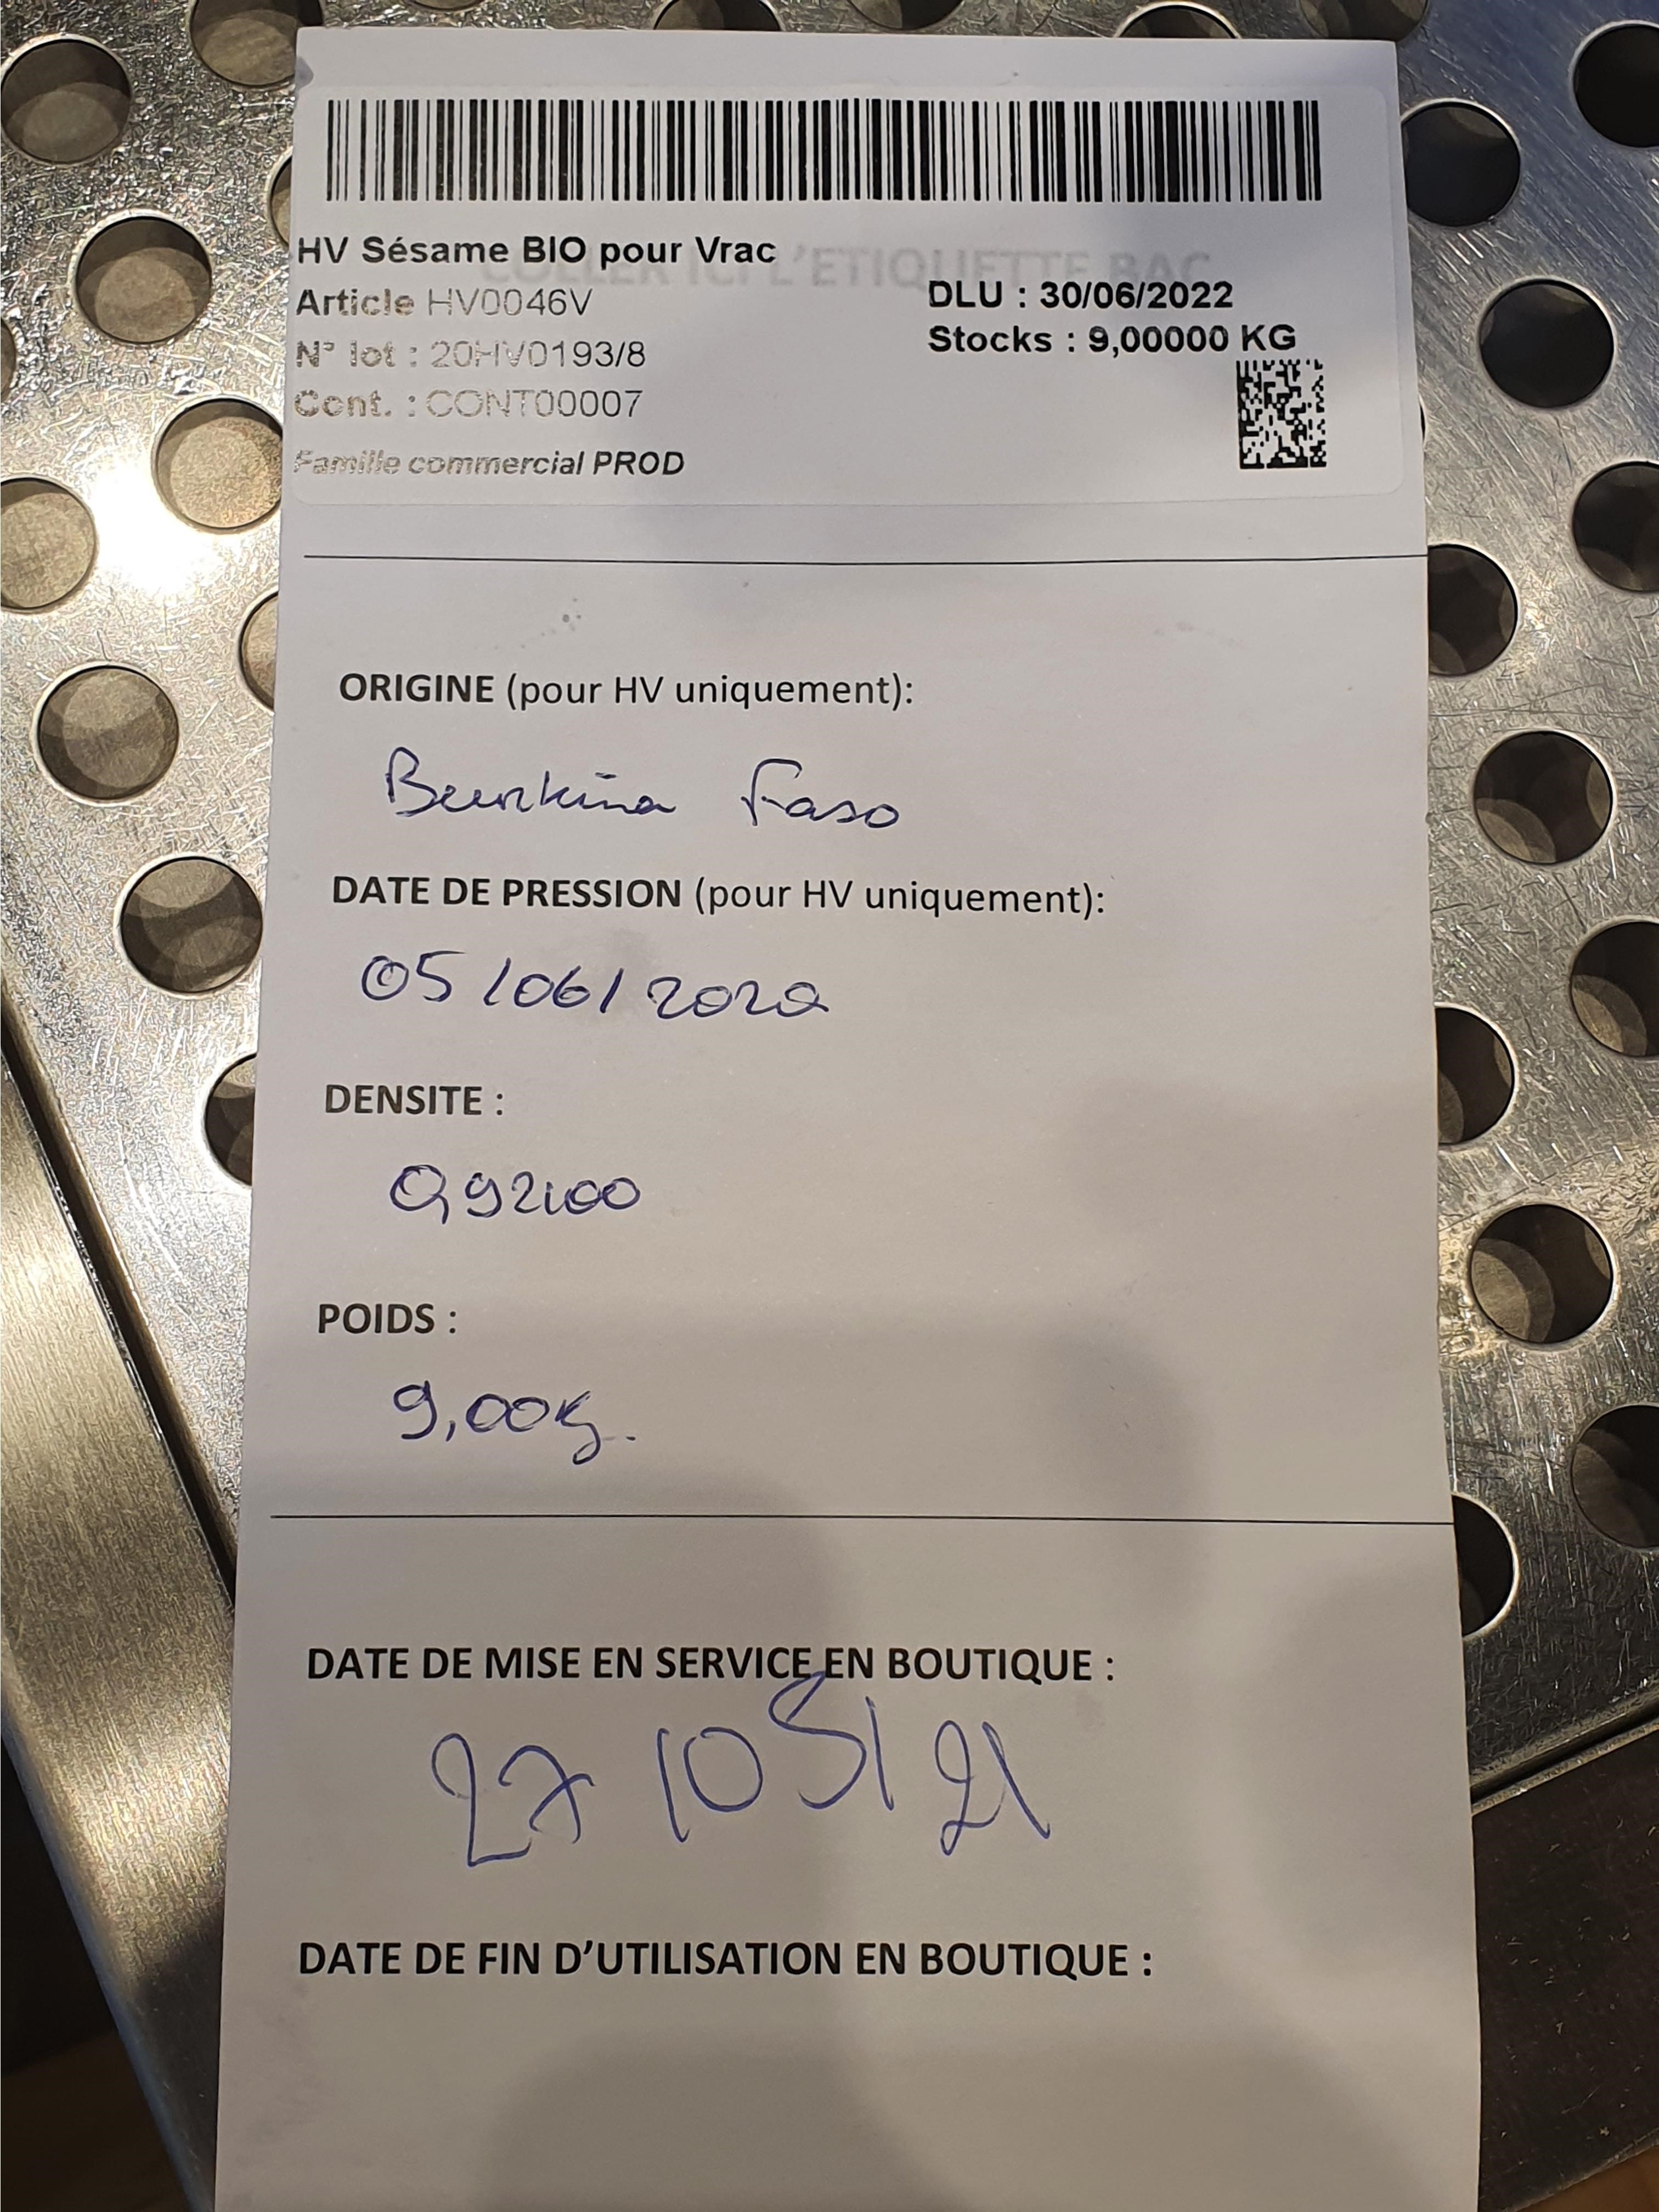 HV Sésame BIO pour Vrac
COLLER ICI L'ETIQUETTE BAC
Article HV0046V
DLU : 30/06/2022
N° lot : 20HV0193/8
Stocks : 9,00000 KG
Cont. : CONT00007
Famille commercial PROD
ORIGINE (pour HV uniquement):
Burkina Faso
DATE DE PRESSION (pour HV uniquement):
05/06/2020
DENSITE :
0,92100
POIDS :
9,00kg.
DATE DE MISE EN SERVICE EN BOUTIQUE :
27/05/21
DATE DE FIN D'UTILISATION EN BOUTIQUE :